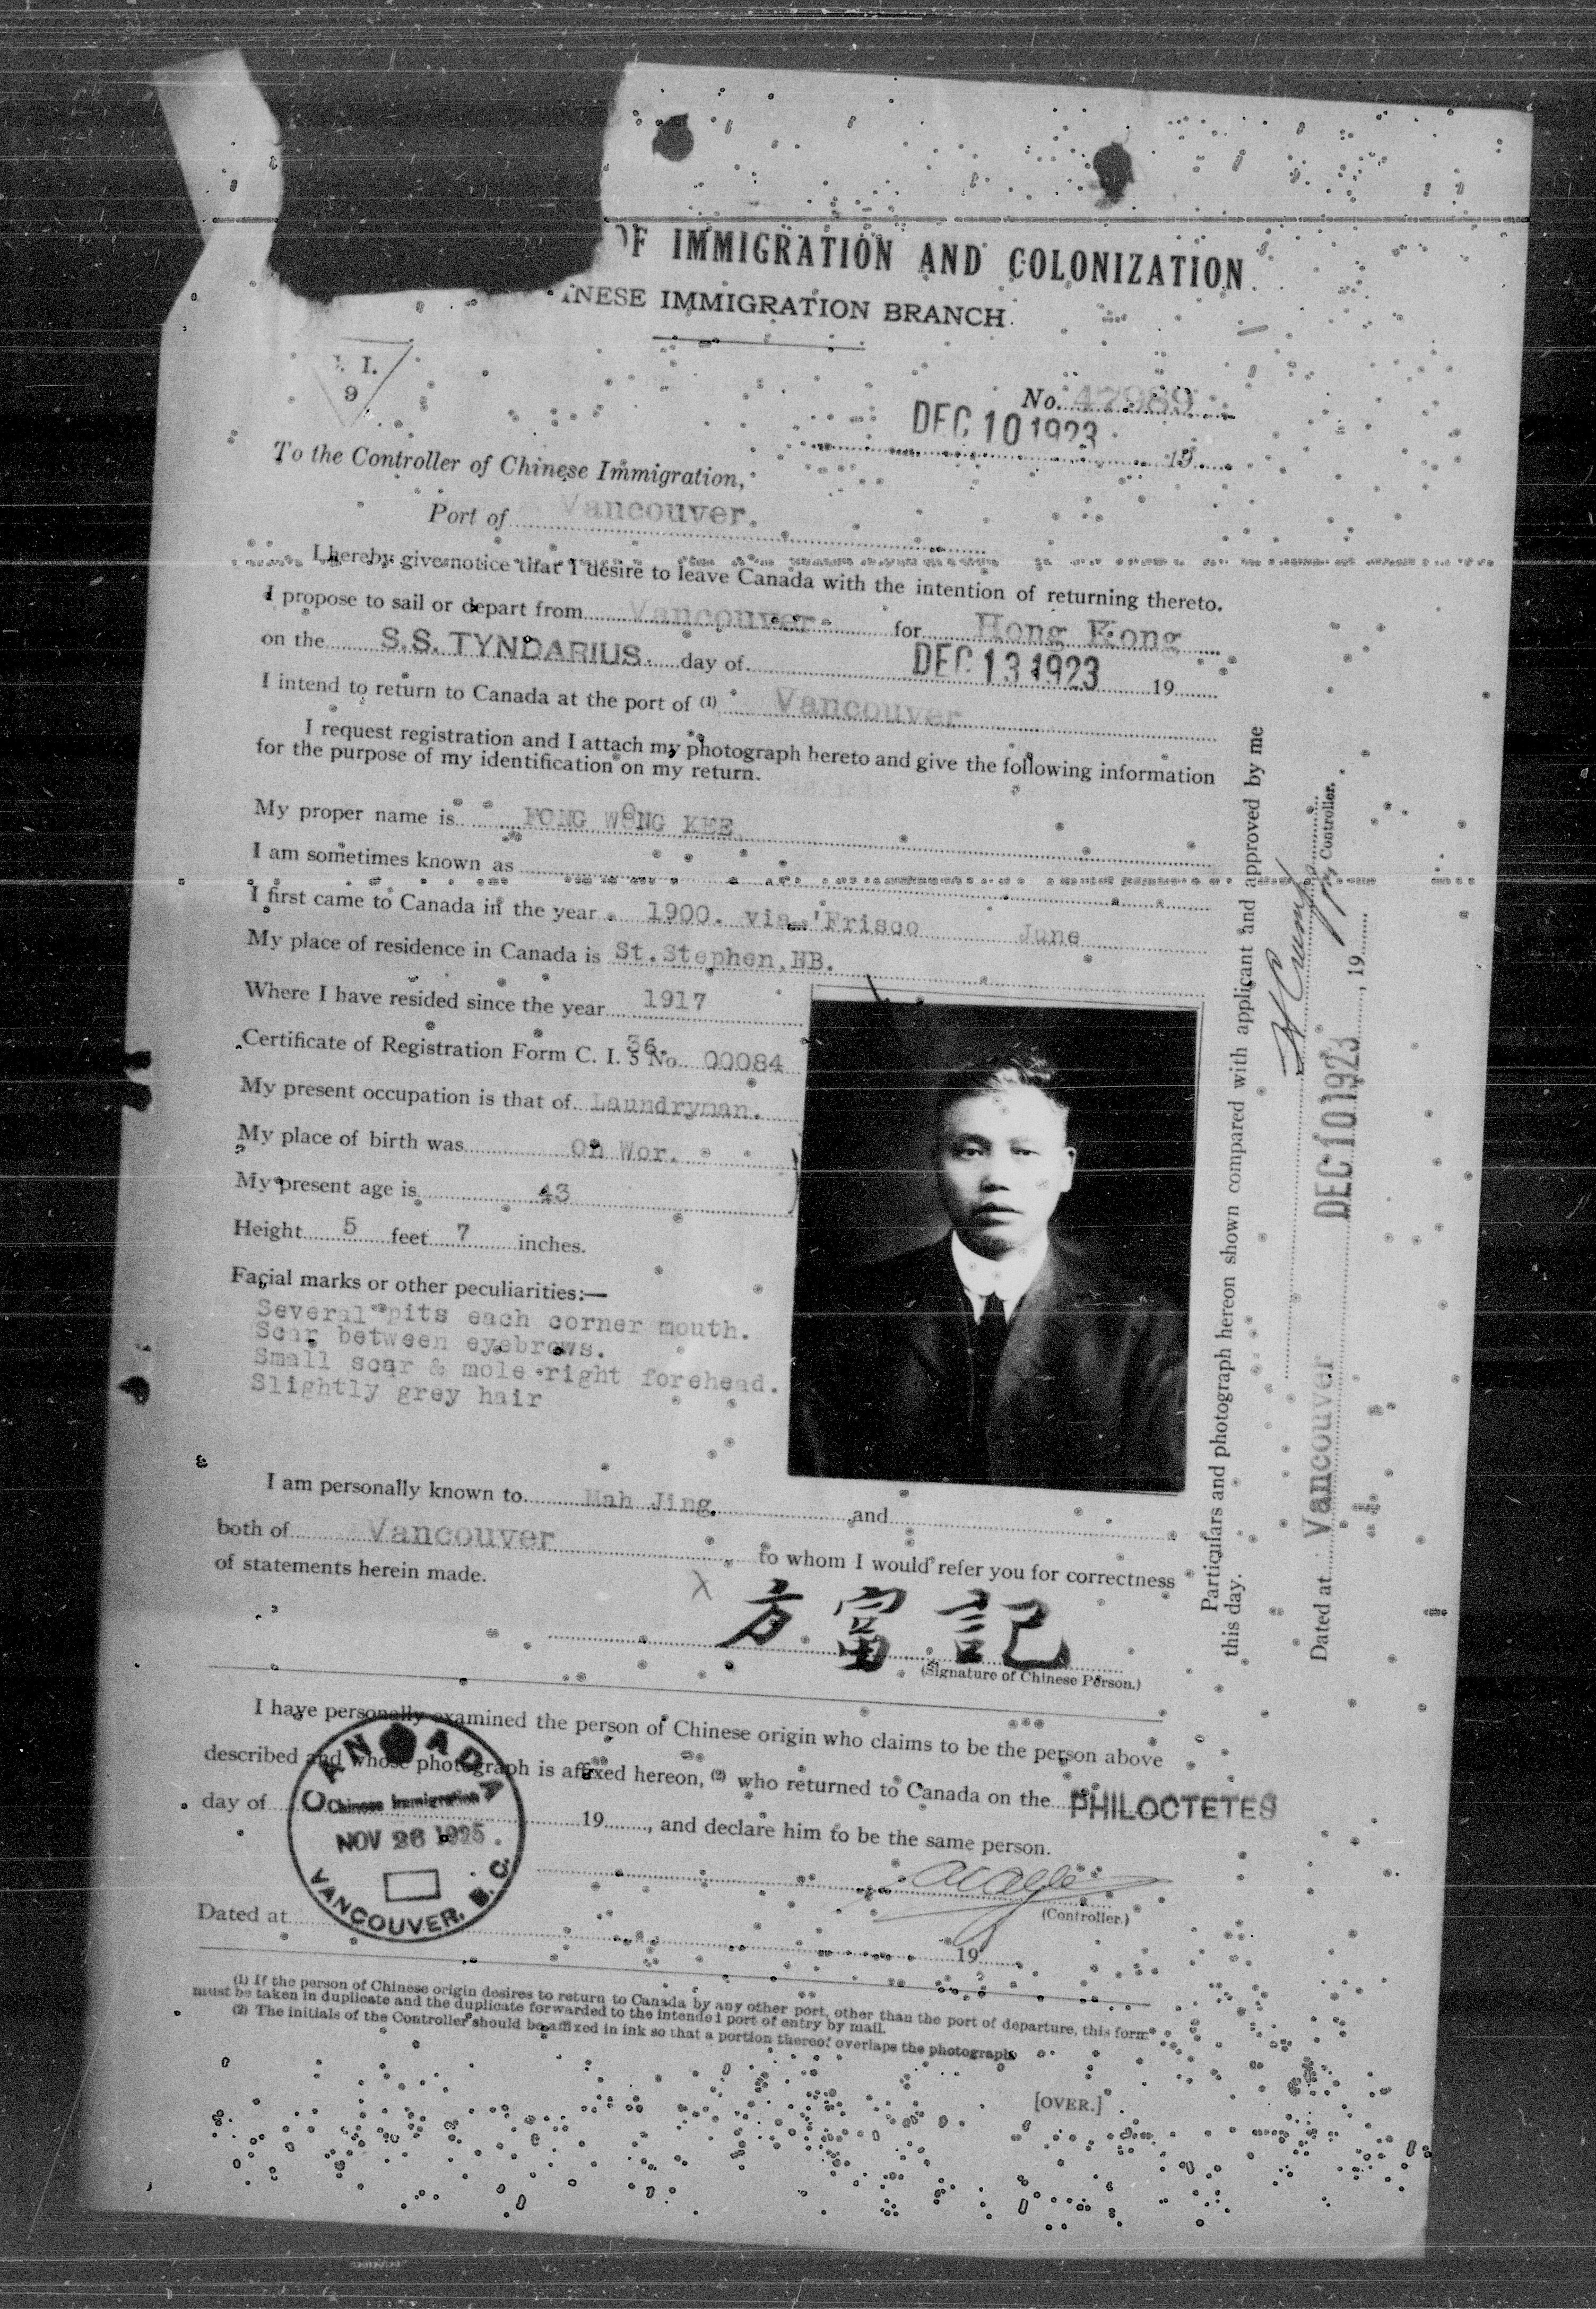 OF IMMIGRATION AND COLONIZATION
INESE IMMIGRATION BRANCH.
. I.
9
No. 47989
DEC 10 1923 19
To the Controller of Chinese Immigration,
Port of Vancouver.
I hereby give notice that I desire to leave Canada with the intention of returning thereto.
I propose to sail or depart from Vancouver for Hong Kong
on the S.S. TYNDARIUS. day of DEC 13 1923 19
I intend to return to Canada at the port of (1) Vancouver
I request registration and I attach my photograph hereto and give the following information
for the purpose of my identification on my return.
My proper name is FONG WONG KEE.
I am sometimes known as
I first came to Canada in the year 1900. via 'Frisco June
My place of residence in Canada is St.Stephen,NB.
Where I have resided since the year 1917
Certificate of Registration Form C. I. 5 36. No. 00084
My present occupation is that of Laundryman.
My place of birth was On Wor.
My present age is 43
Height 5 feet 7 inches.
Facial marks or other peculiarities:—
Several pits each corner mouth.
Scar between eyebrows.
Small scar & mole right forehead.
Slightly grey hair
I am personally known to Mah Jing. and
both of Vancouver to whom I would refer you for correctness
of statements herein made.
X 方富記
(Signature of Chinese Person.)
I have personally examined the person of Chinese origin who claims to be the person above
described and whose photograph is affixed hereon, (2) who returned to Canada on the PHILOCTETES
day of 19, and declare him to be the same person.
CANADA
Chinese Immigration
NOV 26 1925
VANCOUVER, B.C.
(Controller.)
Dated at 19
(1) If the person of Chinese origin desires to return to Canada by any other port, other than the port of departure, this form
must be taken in duplicate and the duplicate forwarded to the intended port of entry by mail.
(2) The initials of the Controller should be affixed in ink so that a portion thereof overlaps the photograph.
[OVER.]
Particulars and photograph hereon shown compared with applicant and approved by me
this day.
Controller.
Dated at Vancouver DEC 10 1923, 19